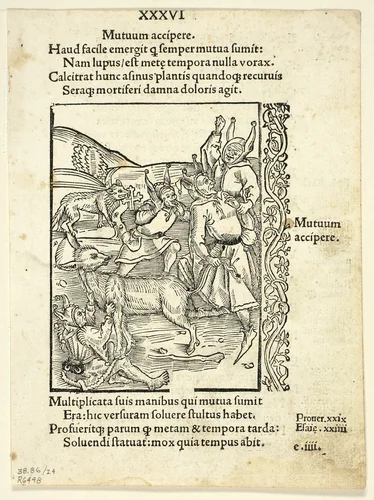 XXXVI
Mutuum accipere.
Haud facile emergit q̃ semper mutua sumit:
Nam lupus/est metę tempora nulla vorax.
Calcitrat hunc asinus plantis quandoq; recuruis
Seraq; mortiferi damna doloris agit.
Mutuum
accipere.
Multiplicata suis manibus qui mutua sumit
Era: hic versuram soluere stultus habet.
Profueritq; parum q̃ metam & tempora tarda:
Soluendi statuat: mox quia tempus abit.
Prouer. xxix
Esaię. xxiiii
e.iiii.
38.86/24
R6448